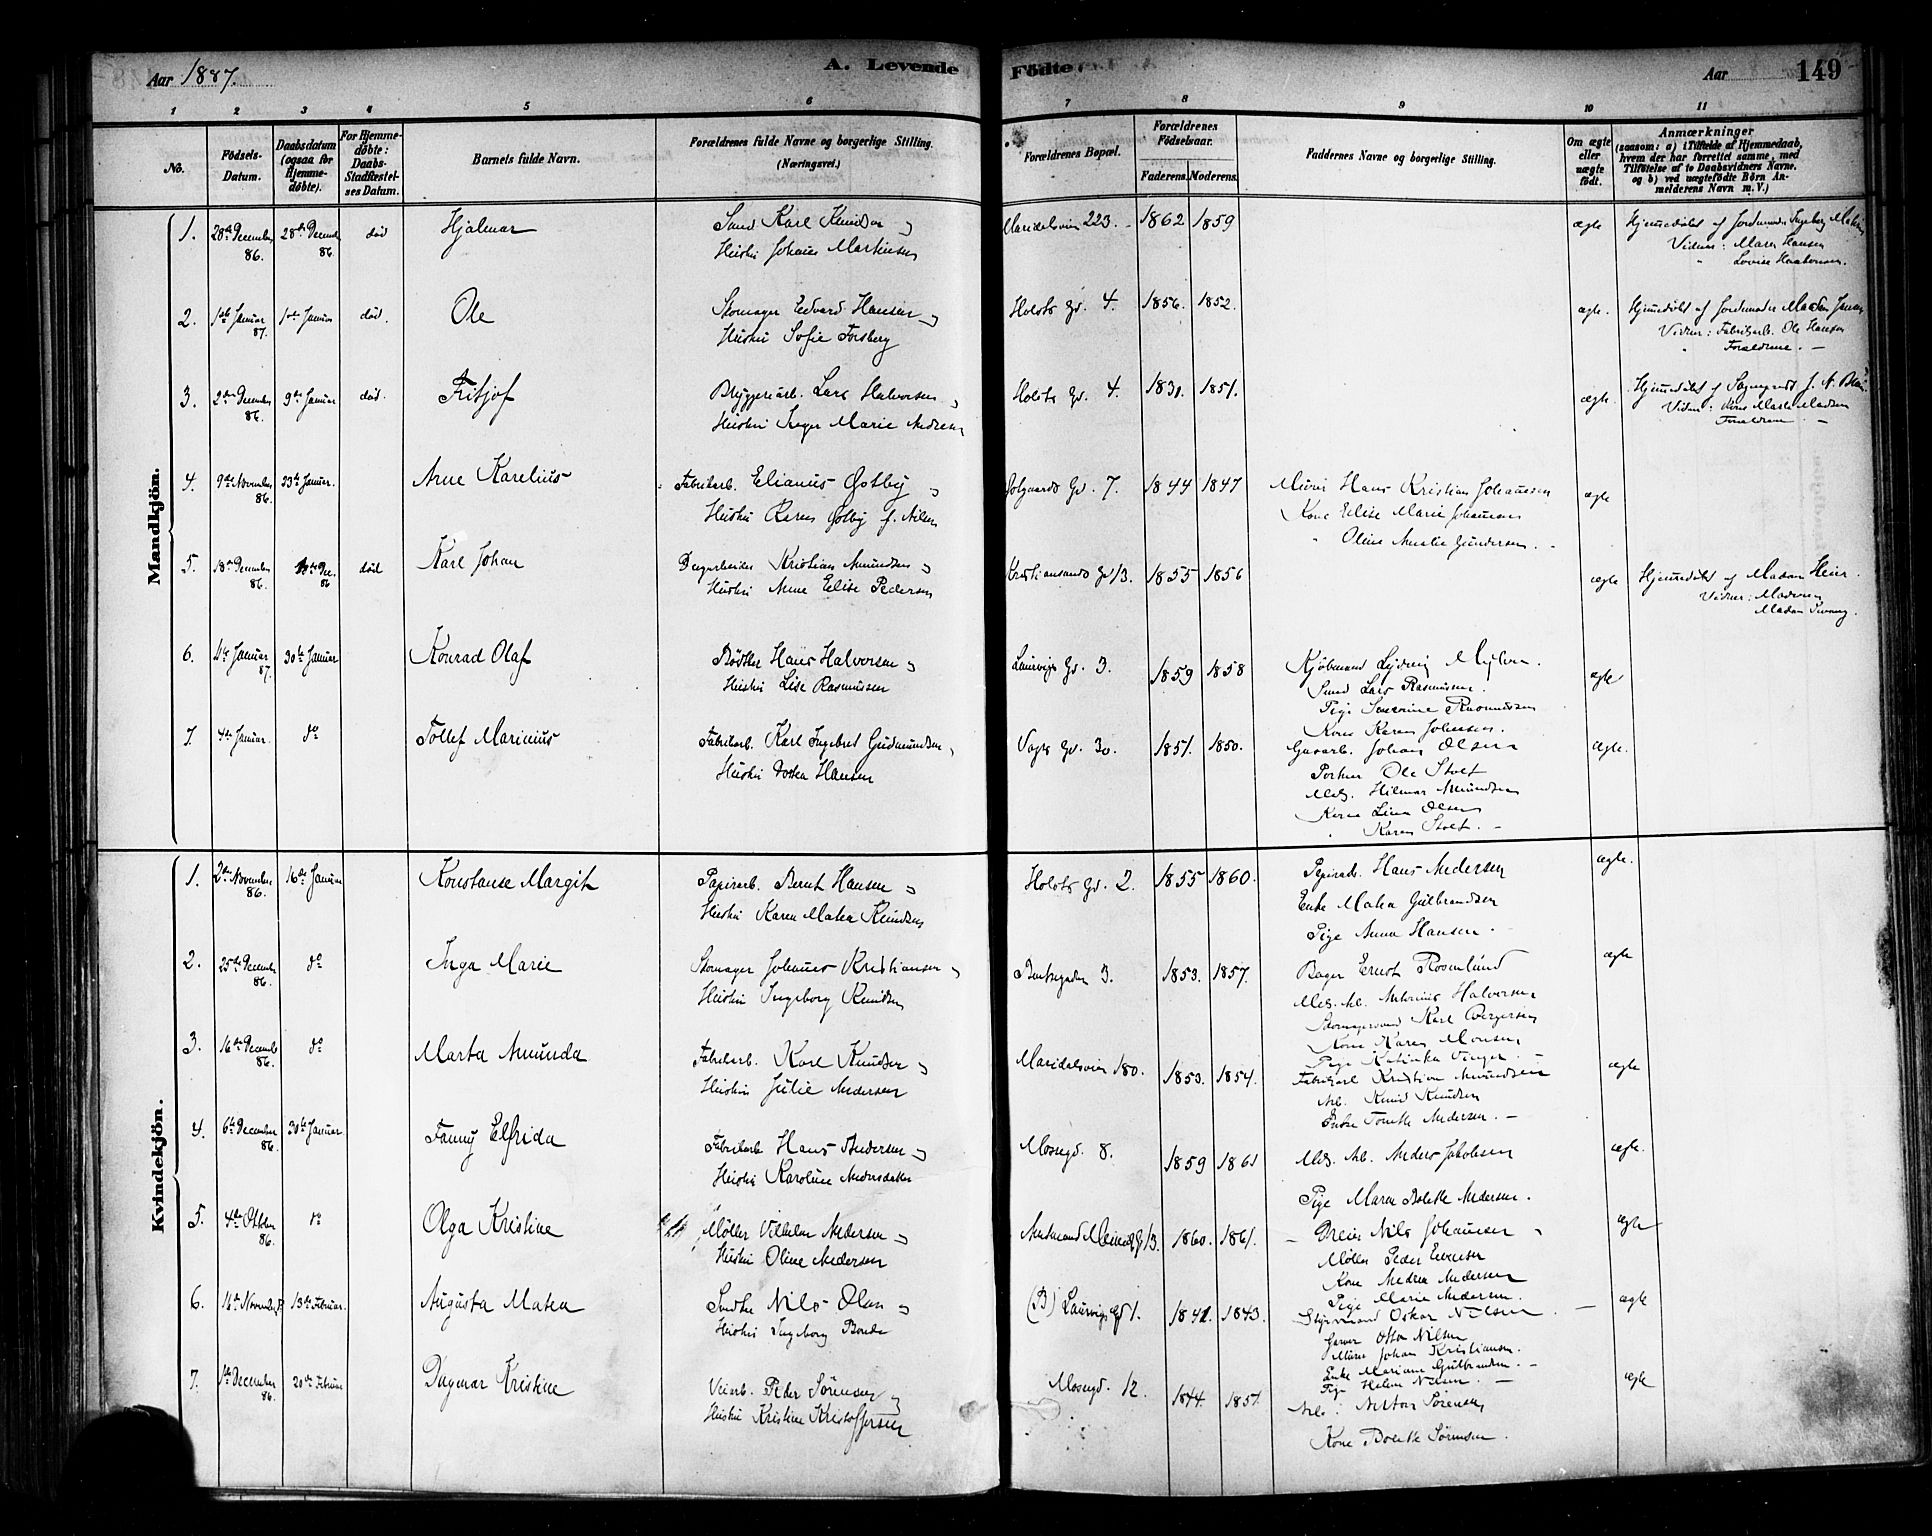 Aar 1887.
A. Levende
Fødte.
Aar
149
1 2 3 4 5 6 7 8 9 10 11
No.
Fødsels-Datum.
Daabsdatum (ogsaa for Hjemme-døbte).
For Hjemme-døbte: Daabs-Stadfæstel-ses Datum.
Barnets fulde Navn.
Forældrenes fulde Navne og borgerlige Stilling. (Næringsvei.)
Forældrenes Bopæl.
Forældrenes Fødselsaar.
Faderens. Moderens.
Faddernes Navne og borgerlige Stilling.
Om ægte eller uægte født.
Anmærkninger
(saasom: a) i Tilfælde af Hjemmedaab, hvem der har forrettet samme, med Tilføielse af to Daabsvidners Navne. og b) ved uægtefødte Børn An-melderens Navn m. V.)
Mandkjön.
1. 28de December 86. 28de Decemb 86. död Hjalmar
Smed Karl Knudsen
Hustru Johanne Martinsen
Maridalsveien 223. 1862 1859 ægte
Hjemmedöbt af Jordemoder Ingeborg
Vidner: Maren Hansen
Lovise
2. 1ste Januar 87. 1ste Januar död. Ole
Skomager Edvard Hansen
Hustru Sofie Forsberg
Holsts Gd. 4. 1856. 1852. ægte.
Hjemmedöbt af Jordemoder Madam
Vidner: Fabrikarb. Ole Hansen
Forældrene. —
3. 2den December 86. 9de Januar död. Fritjof
Bryggeriarb. Lars Halvorsen
Hustru Inger Marie Andresen
Holsts Gd. 4. 1830. 1851. ægte.
Hjemmedöbt af Sognepræst J. N.
Vidner: Kone Madsen
Forældrene —
4. 9de November 86. 23de Januar. Arne Karelius
Fabrikarb. Elianus Østby
Hustru Karen Østby f. Nilsen
Gd. 7. 1844 1847
Murer Hans Kristian Johannesen
Kone Elise Marie Johannesen
" Oline Amalie Gundersen.
ægte
5. 18de December 86. 18de Dec. 86 död Karl Johan
Dagarbeider Kristian Amundsen
Hustru Anne Elise Pedersen
Kristiansands Gd 13. 1855 1856 ægte
Hjemmedöbt af Madam Heier.
Vidner:
Madam
6. 4de Januar 87. 30te Januar Konrad Olaf
Bødker Hans Halvorsen
Hustru Lise Rasmussen
Laurvigs Gd. 3. 1859 1858
Kjøbmand
Smed Lars Rasmussen.
Pige Severine Rasmussen
Kone Karen Johnsen.
ægte
7. 4de Januar. do Tollef Marinius
Fabrikarb. Karl Ingebret Gudmundsen
Hustru Dortea Hansen
Vogts Gd. 30. 1851. 1850.
Gasarb. Johan Olsen
Portner Ole Stolt
Mds. Hilmar Amundsen
Kone Lina Olsen
" Karen Stolt. —
ægte.
Kvindekjön.
1. 2den November 86. 16de Januar Konstanse Margit
Papirarb. Bernt Hansen
Hustru Karen Matea Knudsen
Holsts Gd. 2. 1855 1860.
Papirarb. Hans Andersen
Enke Matea Gulbrandsen
Pige Anna Hansen.
ægte.
2. 25de December 86. do Inga Marie
Skomager Johannes Kristiansen
Hustru Ingeborg Knudsen
Bentsegaden 3. 1853. 1857.
Bager Ernst Rosenlund
Mds. Ab. Antonius Halvorsen
Skomagersvend Karl Bergersen
Kone Karen Monsen
Pige Katinka
ægte
3. 16de Decemb 86. do Marta Amunda
Fabrikarb. Karl Knudsen
Hustru Julie Andersen
Maridalsveien 180. 1853. 1854.
Fabrikarb Kristian Amundsen
Arb. Knud Knudsen
Enke Andersen. —
ægte
4. 6te December 86. 30te Januar. Fanny Elfrida
Fabrikarb Hans Andersen
Hustru Karoline Andersdatter
Mossegd. 8. 1859 1861
Mds. Ab. Anders Jakobsen
Pige Maren Bolette Andersen.
ægte.
5. 4de Oktober 86. do Olga Kristine
Møller Vilhelm Andersen
Hustru Oline Andersen
13. 1860. 1861.
Dreier Nils Johannesen
Møller Peder Evensen
Kone Andrea Andersen
Pige Marie Andersen.
ægte
6. 16de Novemb 13de Februar. Augusta Matea
Snedker Nils Olsen
Hustru Ingeborg Bonde
(B) Laurvigs Gd 1. 1841. 1843.
Styrmand Oskar Nilsen
Garver Otto Nilsen
Murer Johan Kristiansen.
Enke Mariane Gulbrandsen. —
Pige Helene Nilsen. —
ægte
7. 1ste December 86. 20de Februar Dagmar Kristine
Veiarb. Peder Sörensen
Hustru Kristine Kristoffersen
Mossegd. 12. 1844. 1851
Arb. Sörensen
Kone Bolette Sörensen.
ægte